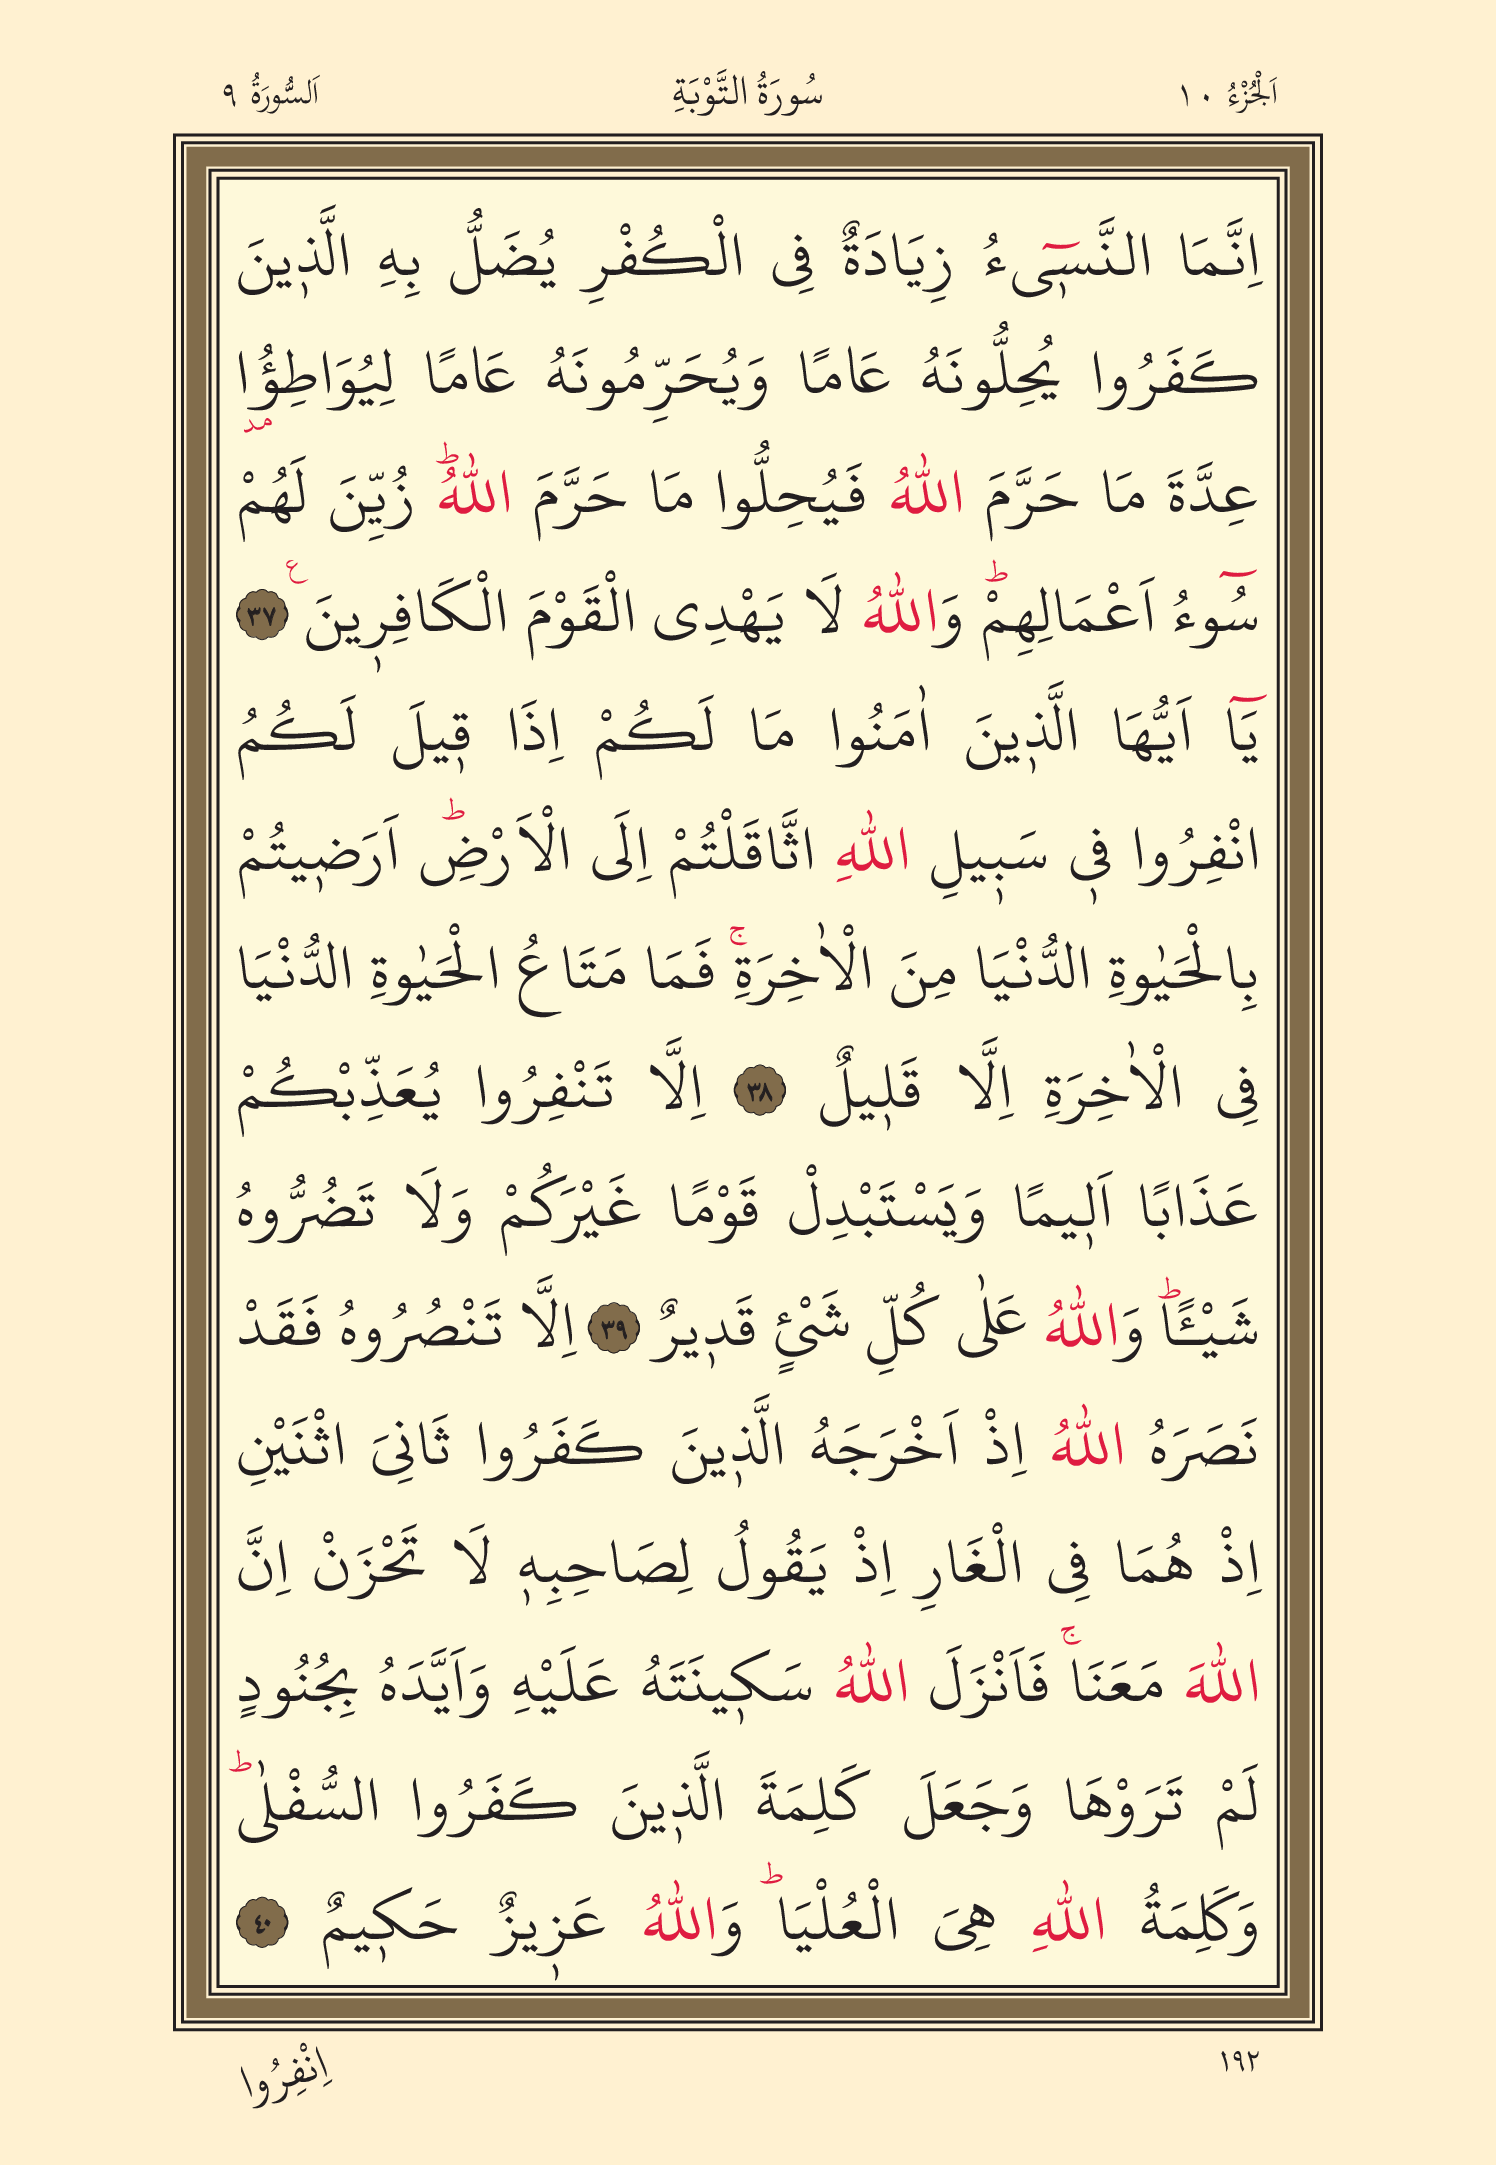 اَلْجُزْءُ ١٠ سُورَةُ التَّوْبَةِ اَلسُّورَةُ ٩
اِنَّمَا النَّسٖٓىءُ زِيَادَةٌ فِى الْكُفْرِ يُضَلُّ بِهِ الَّذٖينَ
كَفَرُوا يُحِلُّونَهُ عَامًا وَيُحَرِّمُونَهُ عَامًا لِيُوَاطِؤُ۫ا
عِدَّةَ مَا حَرَّمَ اللّٰهُ فَيُحِلُّوا مَا حَرَّمَ اللّٰهُؕ زُيِّنَ لَهُمْ
سُٓوءُ اَعْمَالِهِمْؕ وَاللّٰهُ لَا يَهْدِى الْقَوْمَ الْكَافِرٖينَ ع ٣٧
يَٓا اَيُّهَا الَّذٖينَ اٰمَنُوا مَا لَكُمْ اِذَا قٖيلَ لَكُمُ
انْفِرُوا فٖى سَبٖيلِ اللّٰهِ اثَّاقَلْتُمْ اِلَى الْاَرْضِؕ اَرَضٖيتُمْ
بِالْحَيٰوةِ الدُّنْيَا مِنَ الْاٰخِرَةِۚ فَمَا مَتَاعُ الْحَيٰوةِ الدُّنْيَا
فِى الْاٰخِرَةِ اِلَّا قَلٖيلٌ ٣٨ اِلَّا تَنْفِرُوا يُعَذِّبْكُمْ
عَذَابًا اَلٖيمًا وَيَسْتَبْدِلْ قَوْمًا غَيْرَكُمْ وَلَا تَضُرُّوهُ
شَيْـًٔاؕ وَاللّٰهُ عَلٰى كُلِّ شَىْءٍ قَدٖيرٌ ٣٩ اِلَّا تَنْصُرُوهُ فَقَدْ
نَصَرَهُ اللّٰهُ اِذْ اَخْرَجَهُ الَّذٖينَ كَفَرُوا ثَانِىَ اثْنَيْنِ
اِذْ هُمَا فِى الْغَارِ اِذْ يَقُولُ لِصَاحِبِهٖ لَا تَحْزَنْ اِنَّ
اللّٰهَ مَعَنَاۚ فَاَنْزَلَ اللّٰهُ سَكٖينَتَهُ عَلَيْهِ وَاَيَّدَهُ بِجُنُودٍ
لَمْ تَرَوْهَا وَجَعَلَ كَلِمَةَ الَّذٖينَ كَفَرُوا السُّفْلٰىؕ
وَكَلِمَةُ اللّٰهِ هِىَ الْعُلْيَاؕ وَاللّٰهُ عَزٖيزٌ حَكٖيمٌ ٤٠
١٩٢ اِنْفِرُوا